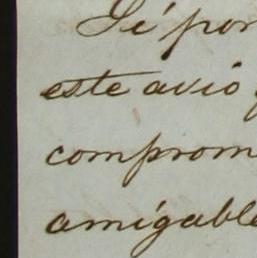 Sé por
este avio
comprom
amigable